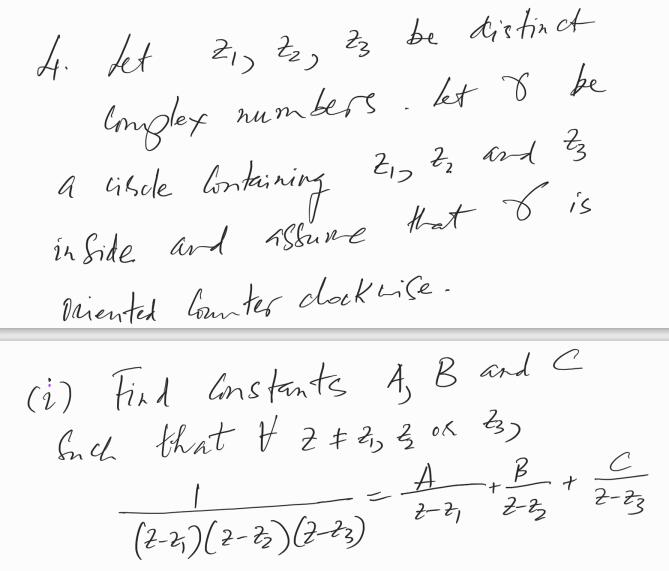 4. Let z₁, z₂, z₃ be distinct
complex numbers. Let γ be
a circle containing z₁, z₂ and z₃
inside and assume that γ is
oriented counter clockwise.
(i) Find constants A, B and C
such that ∀ z ≠ z₁, z₂ or z₃,
1/((z-z₁)(z-z₂)(z-z₃)) = A/(z-z₁) + B/(z-z₂) + C/(z-z₃)